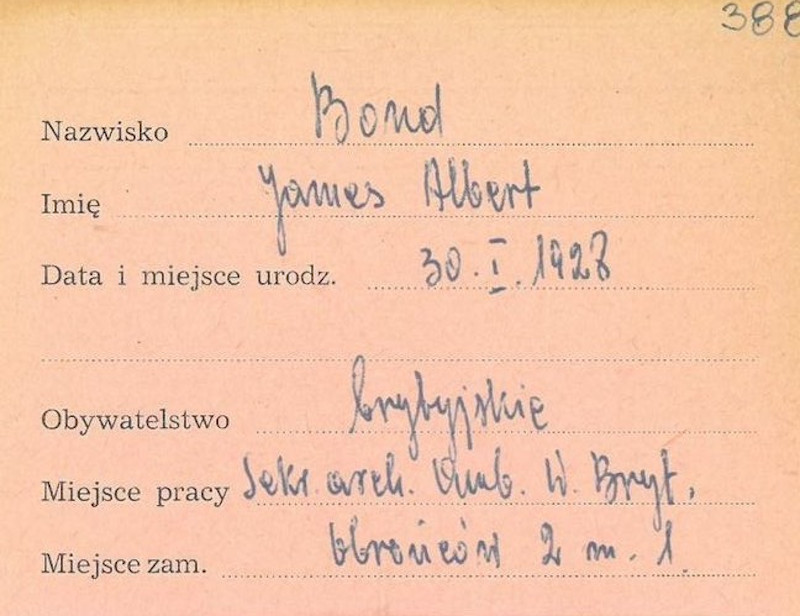 388
Nazwisko Bond
Imię James Albert
Data i miejsce urodz. 30. I. 1928
Obywatelstwo brytyjskie
Miejsce pracy Sekr. arch. Amb. W. Bryt.
Miejsce zam. Obrońców 2 m. 1